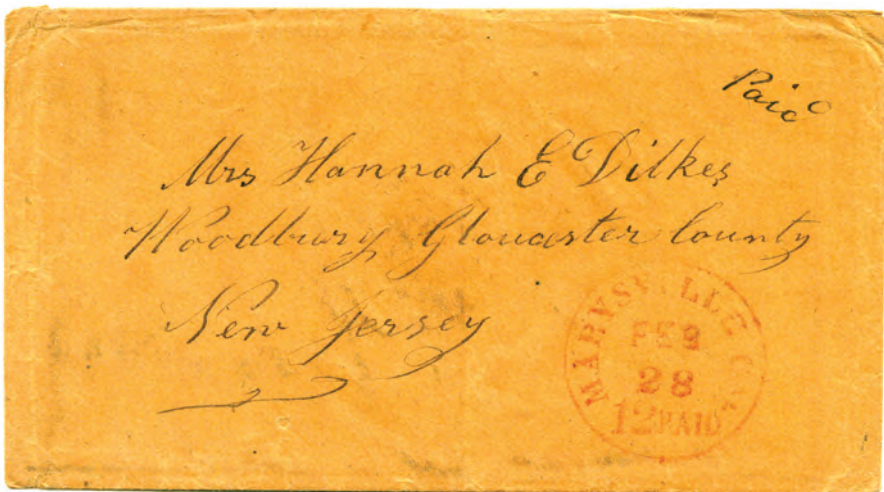 Paid
Mrs Hannah E Dilkes
Woodbury Gloucester County
New Jersey
MARYSVILLE CAL.
FEB
28
12 PAID